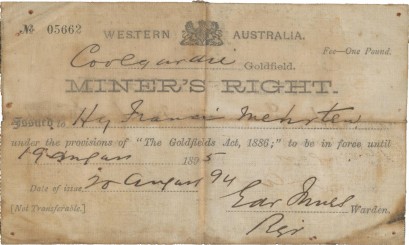 No 05662
WESTERN AUSTRALIA.
Coolgardie Goldfield.
Fee—One Pound.
MINER'S RIGHT.
Issued to Hy Francis Mehrten
under the provisions of "The Goldfields Act, 1886;" to be in force until
19 August 1895
Date of issue 20 August 94
[Not Transferable.]
Warden.